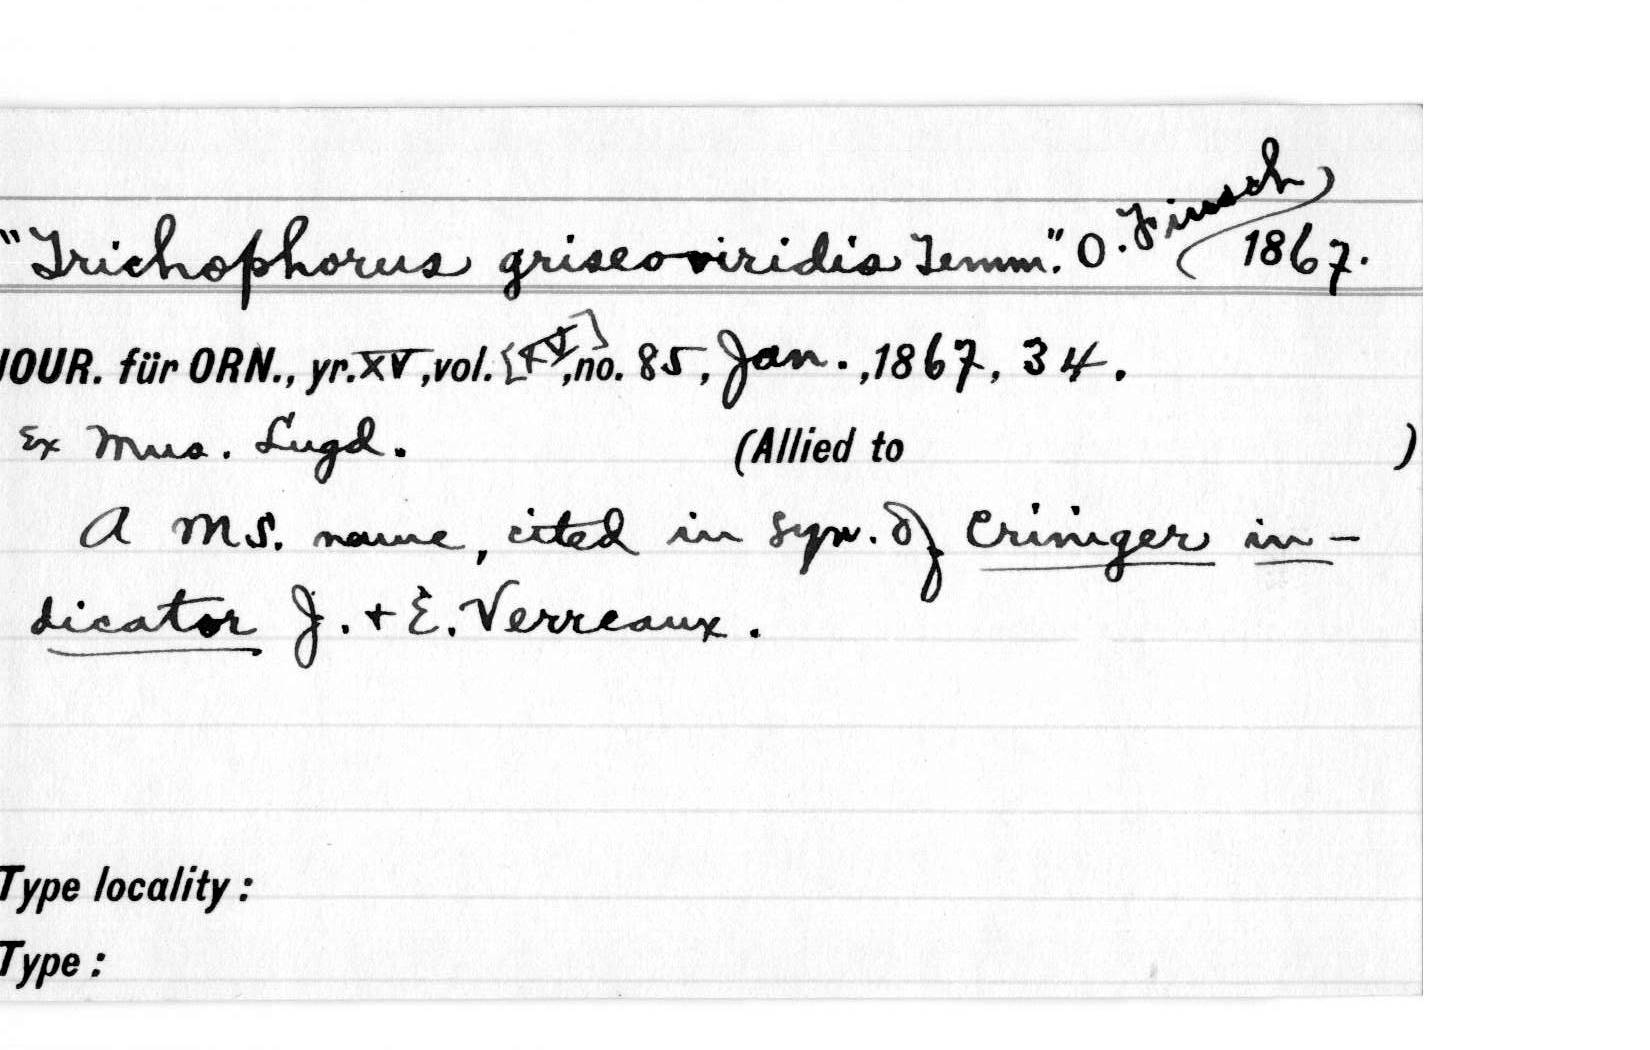 "Trichophorus griseoviridis Temm." O. Finsch 1867.
JOUR. für ORN., yr. XV, vol. [XV], no. 85, Jan., 1867, 34.
Ex Mus. Lugd. (Allied to )
A MS. name, cited in syn. of Criniger in-
dicator J. + E. Verreaux.
Type locality :
Type :